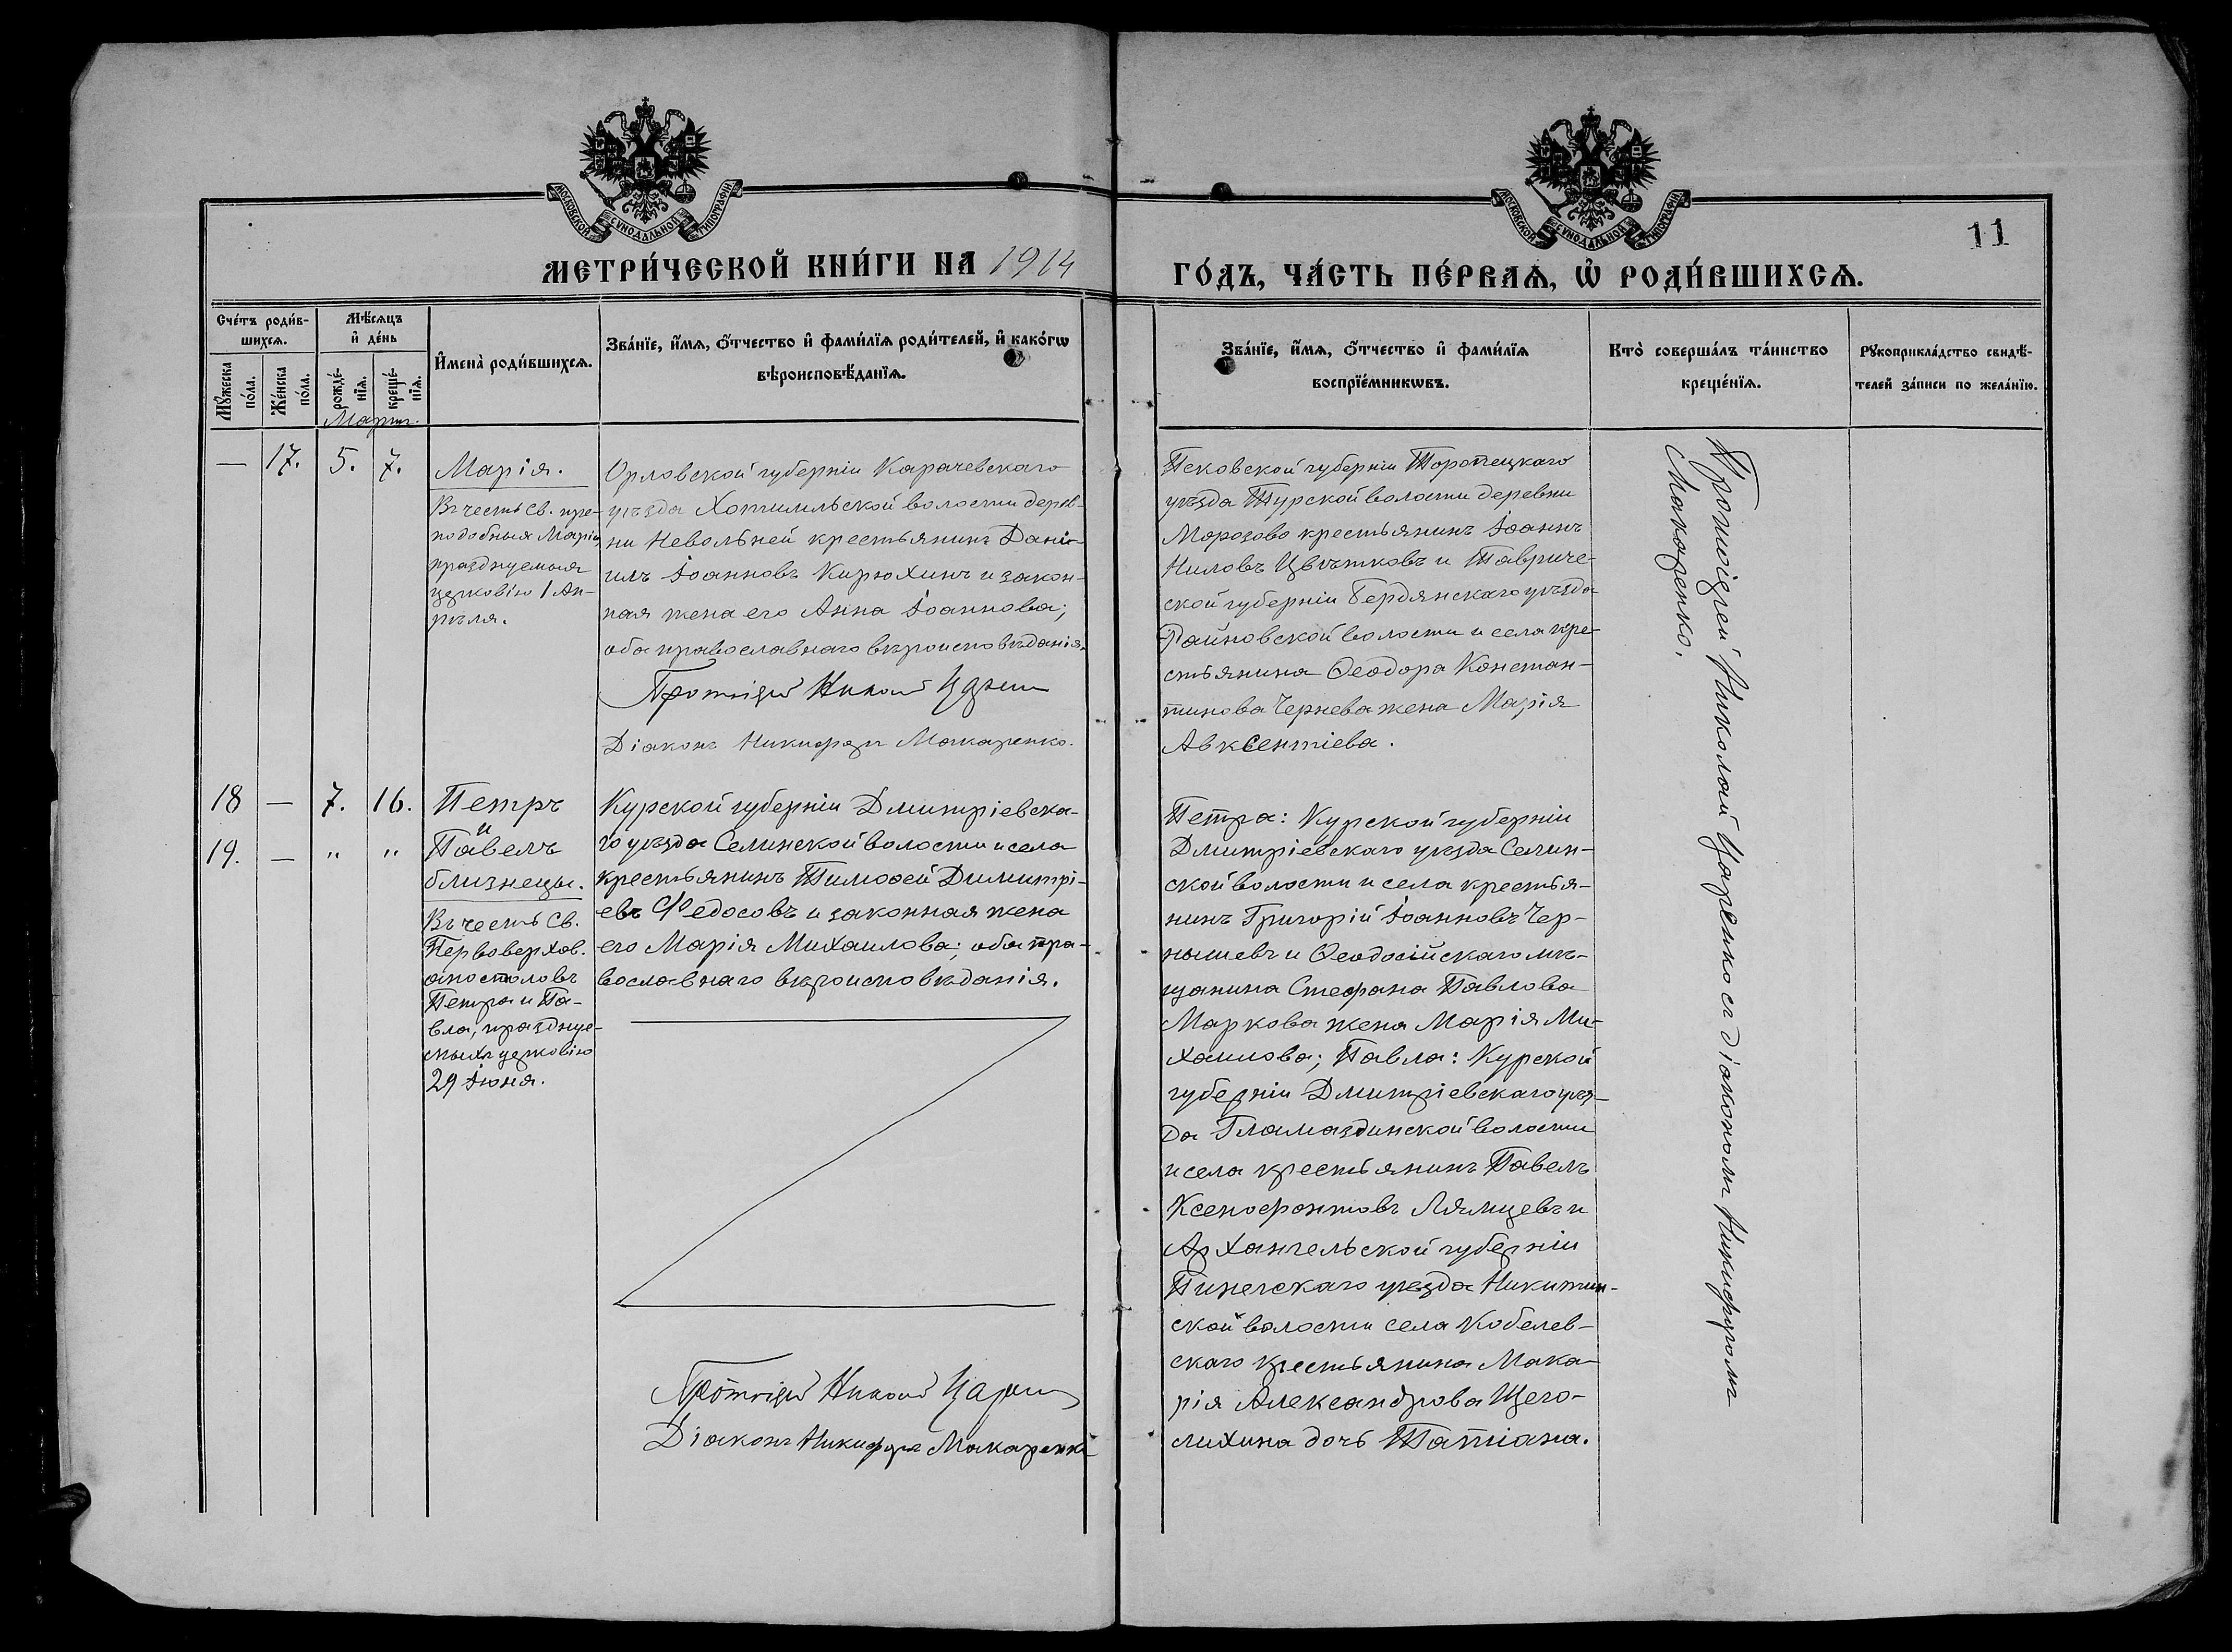 МОСКОВСКОЙ СѴНОДАЛЬНОЙ ТИПОГРАФІИ
МОСКОВСКОЙ СѴНОДАЛЬНОЙ ТИПОГРАФІИ
11
МЕТРИ́ЧЕСКОЙ КНИ́ГИ НА 1914
ГО́ДЪ, ЧА́СТЬ ПЕ́РВАѦ, Ѡ҆ РОДИ́ВШИХСѦ.
Сче́тъ роди́в-
шихсѧ.
Мꙋ́жеска
по́ла.
Же́нска
по́ла.
Мѣ́сѧцъ
и҆ де́нь
рожде́-
нїѧ.
креще́-
нїѧ.
И҆мена̀ роди́вшихсѧ.
Зва́нїе, и҆́мѧ, ѻ҆́тчество и҆ фами́лїѧ роди́телей, и҆ како́гѡ
вѣроисповѣ́данїѧ.
Зва́нїе, и҆́мѧ, ѻ҆́тчество и҆ фами́лїѧ
воспрїе́мникѡвъ.
Кто̀ соверша́лъ та́инство
креще́нїѧ.
Рꙋкоприкла́дство свидѣ́-
телей за́писи по жела́нїю.
Мартъ.
— 17. 5. 7.
Марія.
Въ честь св. пре-
подобныя Маріи
празднуемыя
церковію 1 Ап-
рѣля.
Орловской губерніи Карачевскаго
уѣзда Хотимльской волости дерев-
ни Невольней крестьянинъ Дані-
илъ Іоанновъ Кирюхинъ и закон-
ная жена его Анна Іоаннова;
оба православнаго вѣроисповѣданія.
Протоіерей Николай
Діаконъ Никифоръ Макаренко.
Псковской губерніи Торопецкаго
уѣзда Турской волости деревни
Морозово крестьянинъ Іоаннъ
Ниловъ Цвѣтковъ и Тавриче-
ской губерніи Бердянскаго уѣзда
Райновской волости и села кре-
стьянина Ѳеодора Констан-
тинова Чернева жена Марія
Авксентіева.
Протоіерей Николай Царенко съ діакономъ Никифоромъ
Макаренко.
18 — 7. 16.
19. — " "
Петръ
и
Павелъ
близнецы.
Въ честь св.
Первоверхов.
апостоловъ
Петра и Па-
вла, праздуе-
мыхъ церковію
29 Іюня.
Курской губерніи Дмитріевска-
го уѣзда Селинской волости и села
крестьянинъ Тимоѳей Димитрі-
евъ Федосовъ и законная жена
его Марія Михаилова; оба пра-
вославнаго вѣроисповѣданія.
Протоіерей Николай
Діаконъ Никифоръ Макаренко
Петра: Курской губерніи
Дмитріевскаго уѣзда Селин-
ской волости и села крестья-
нинъ Григорій Іоанновъ Чер-
нышевъ и Ѳеодосійскаго мѣ-
щанина Стефана Павлова
Маркова жена Марія Ми-
хаилова; Павла: Курской
губерніи Дмитріевскаго уѣз-
да Гламаздинской волости
и села крестьянинъ Павелъ
Ксенофонтовъ Лямцевъ и
Архангельской губерніи
Пинегскаго уезда Никитин-
ской волости села Кобелев-
скаго крестьянина Мака-
рія Александрова Щего-
лихина дочь Татіана.